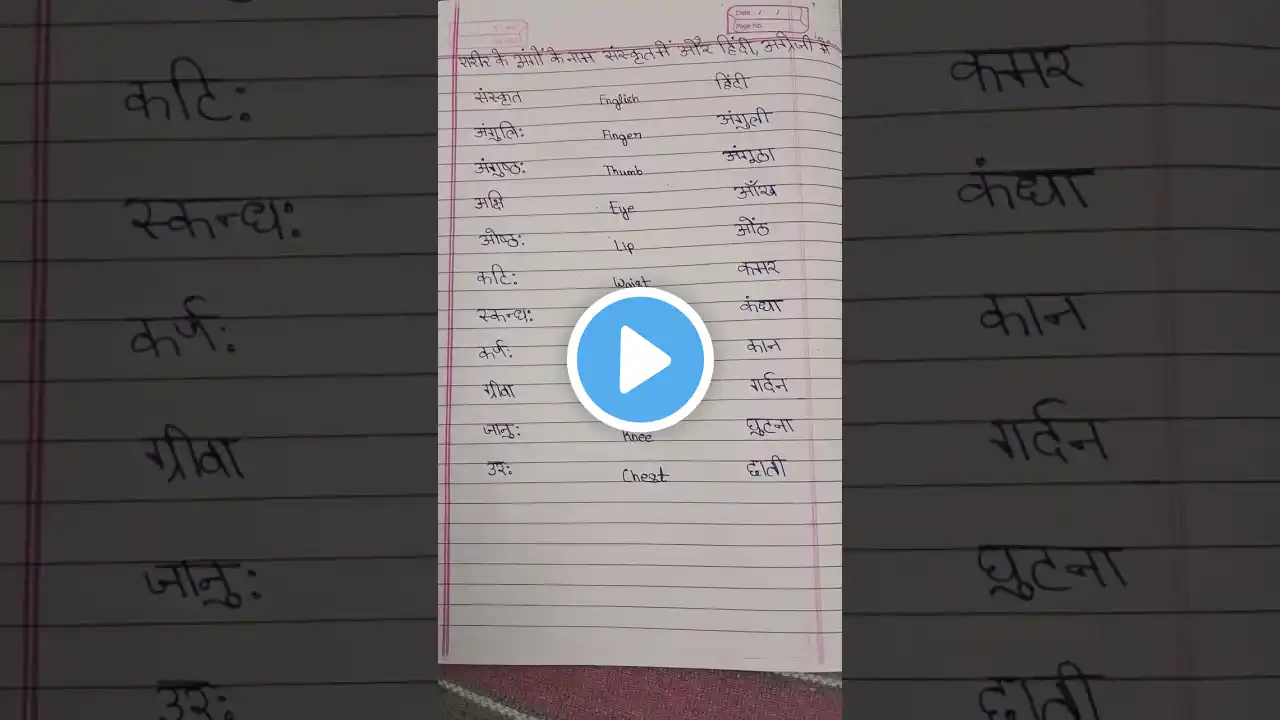 Date / /
Page No.
शरीर के अंगों के नाम संस्कृत में और हिंदी, अंग्रेजी में
संस्कृत English हिंदी
अंगुलि: Finger अंगुली
अंगुष्ठ: Thumb अंगूठा
अक्षि Eye आँख
ओष्ठ: Lip ओंठ
कटि: Waist कमर
स्कन्ध: कंधा
कर्ण: कान
ग्रीवा गर्दन
जानु: Knee घुटना
उर: Chest छाती